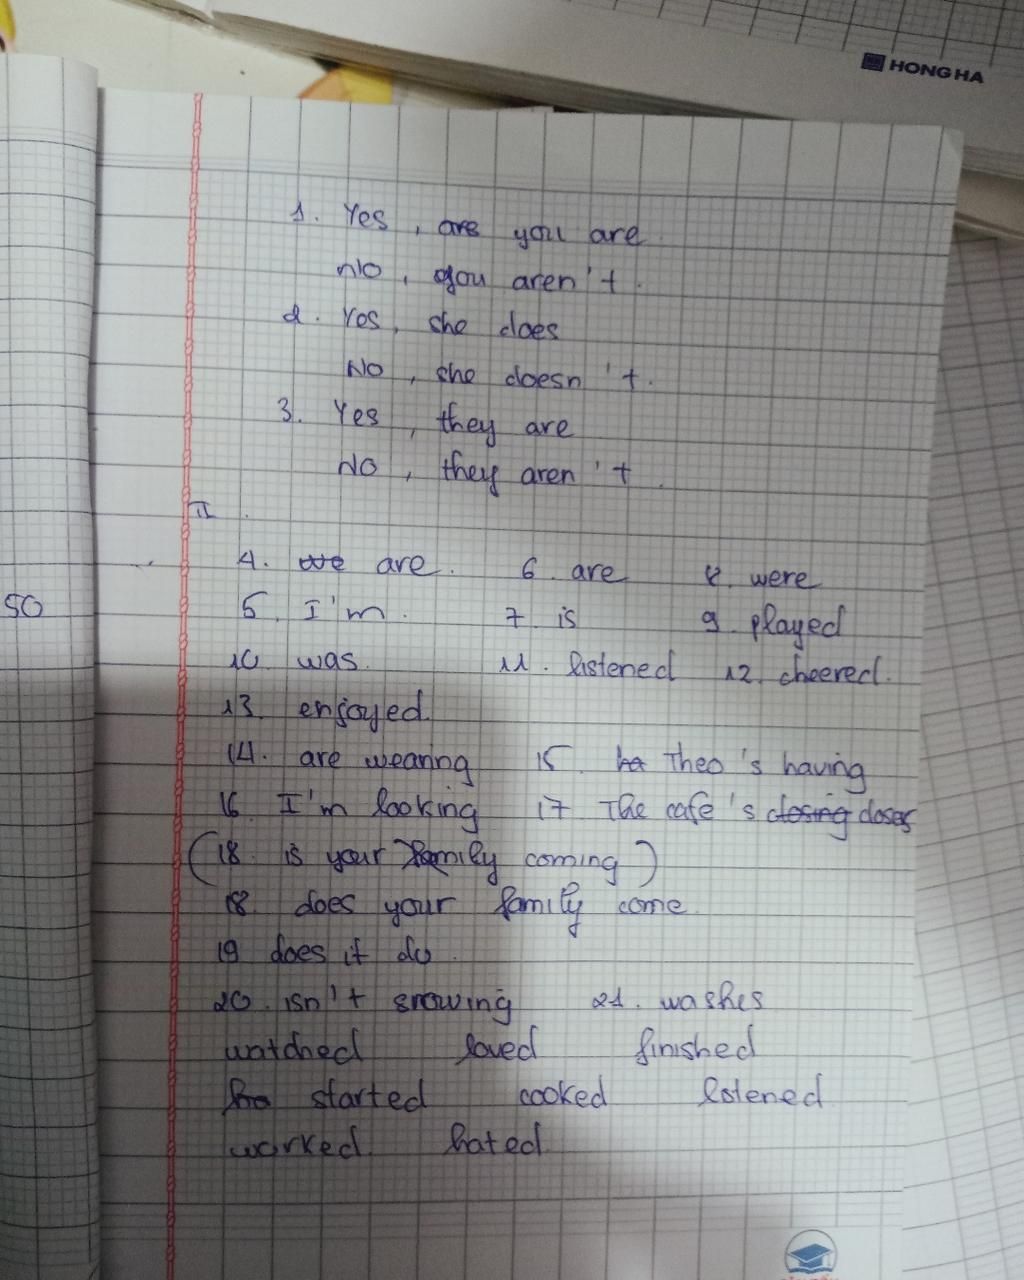 HONG HA
1. Yes, are you are.
No, you aren't.
2. Yes, she does
No, she doesn't.
3. Yes, they are
No, they aren't.
II.
4. we are. 6. are 8. were
50
5. I'm. 7. is 9. played
10. was. 11. listened 12. cheered.
13. enjoyed.
14. are wearing 15. ha Theo's having
16. I'm looking 17 The cafe's closing closes
(18. is your family coming)
18. does your family come.
19 does it do.
20. isn't snowing 21. washes
watched loved finished
started cooked listened
worked. hated.